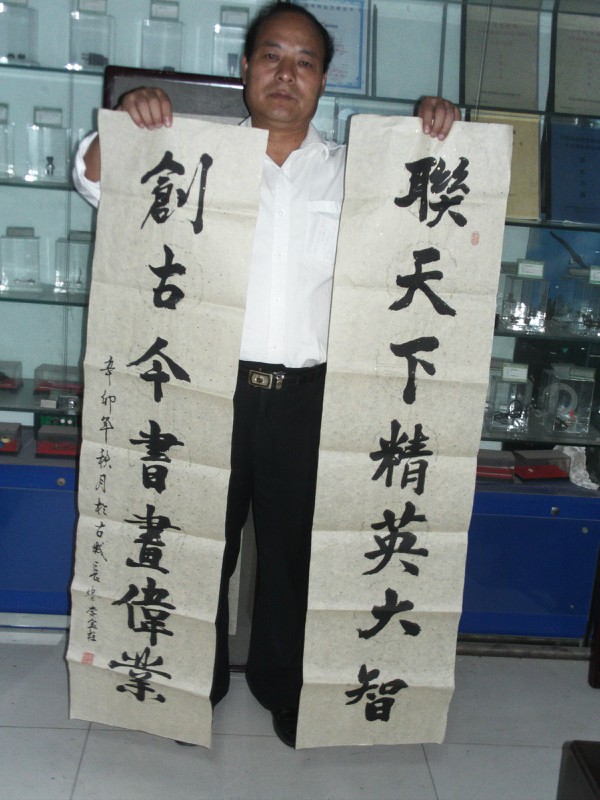 聯天下精英大智
創古今書畫偉業
辛卯年秋月於古城長安李金柱